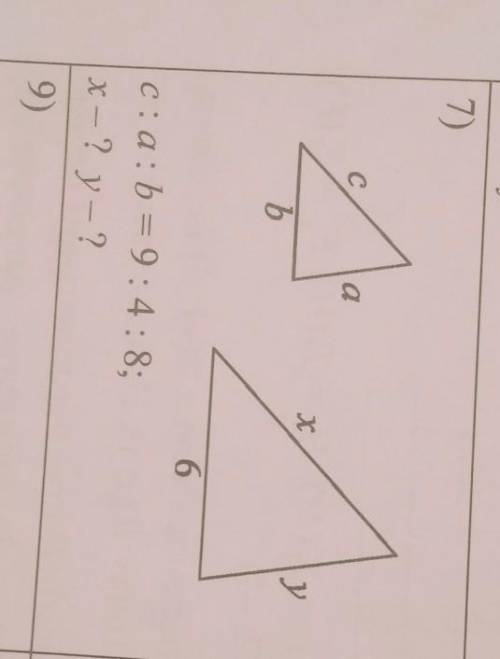 7)
c
b
a
x
6
y
c : a : b = 9 : 4 : 8;
x – ? y – ?
9)